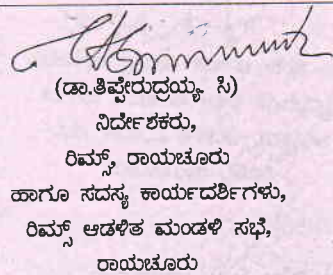 (ಡಾ.ತಿಪ್ಪೇರುದ್ರಯ್ಯ. ಸಿ)
ನಿರ್ದೇಶಕರು,
ರಿಮ್ಸ್, ರಾಯಚೂರು
ಹಾಗೂ ಸದಸ್ಯ ಕಾರ್ಯದರ್ಶಿಗಳು,
ರಿಮ್ಸ್ ಆಡಳಿತ ಮಂಡಳಿ ಸಭೆ,
ರಾಯಚೂರು